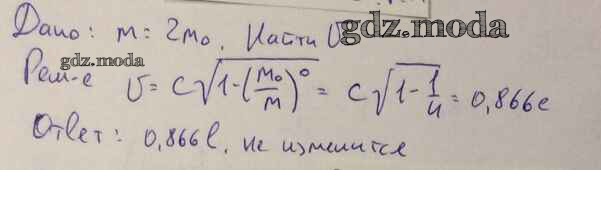 Дано: m = 2m₀. Найти υ gdz.moda
gdz.moda
Реш-е υ = c√(1-(m₀/m)⁰) = c√(1-1/4) = 0,866c
Ответ: 0,866c, не изменится